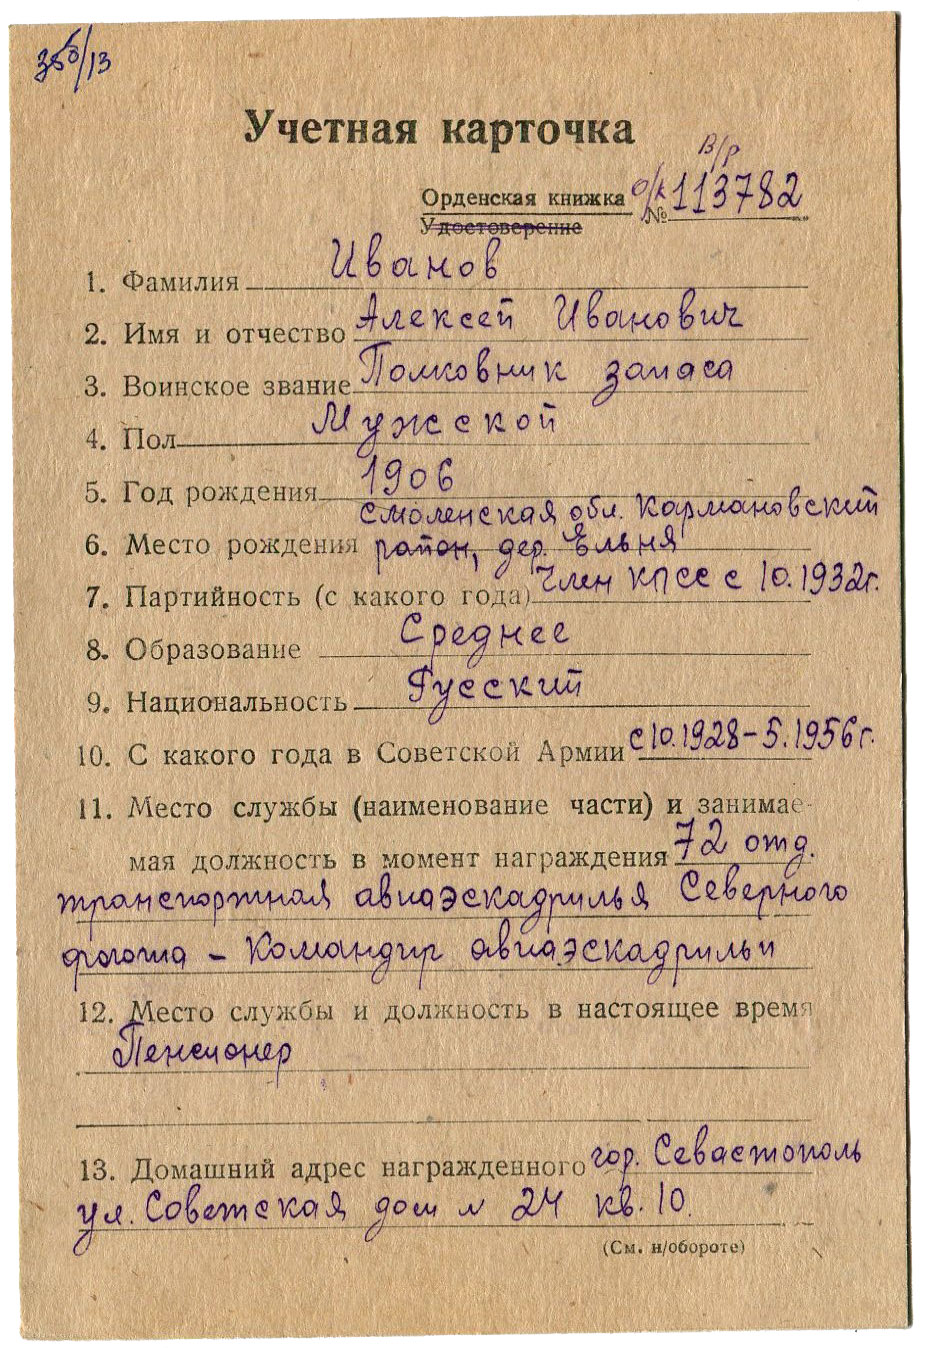 356/13
Учетная карточка
в/р
Орденская книжка о/к № 113782
Удостоверение
1. Фамилия Иванов
2. Имя и отчество Алексей Иванович
3. Воинское звание Полковник запаса
4. Пол Мужской
5. Год рождения 1906
Смоленская обл. Кармановский
6. Место рождения район, дер. Ельня
7. Партийность (с какого года) Член КПСС с 10.1932г.
8. Образование Среднее
9. Национальность Русский
10. С какого года в Советской Армии с 10.1928-5.1956г.
11. Место службы (наименование части) и занимае-
мая должность в момент награждения 72 отд.
транспортная авиаэскадрилья Северного
флота – Командир авиаэскадрильи
12. Место службы и должность в настоящее время
Пенсионер
13. Домашний адрес награжденного гор. Севастополь
ул. Советская дом № 24 кв. 10.
(См. н/обороте)